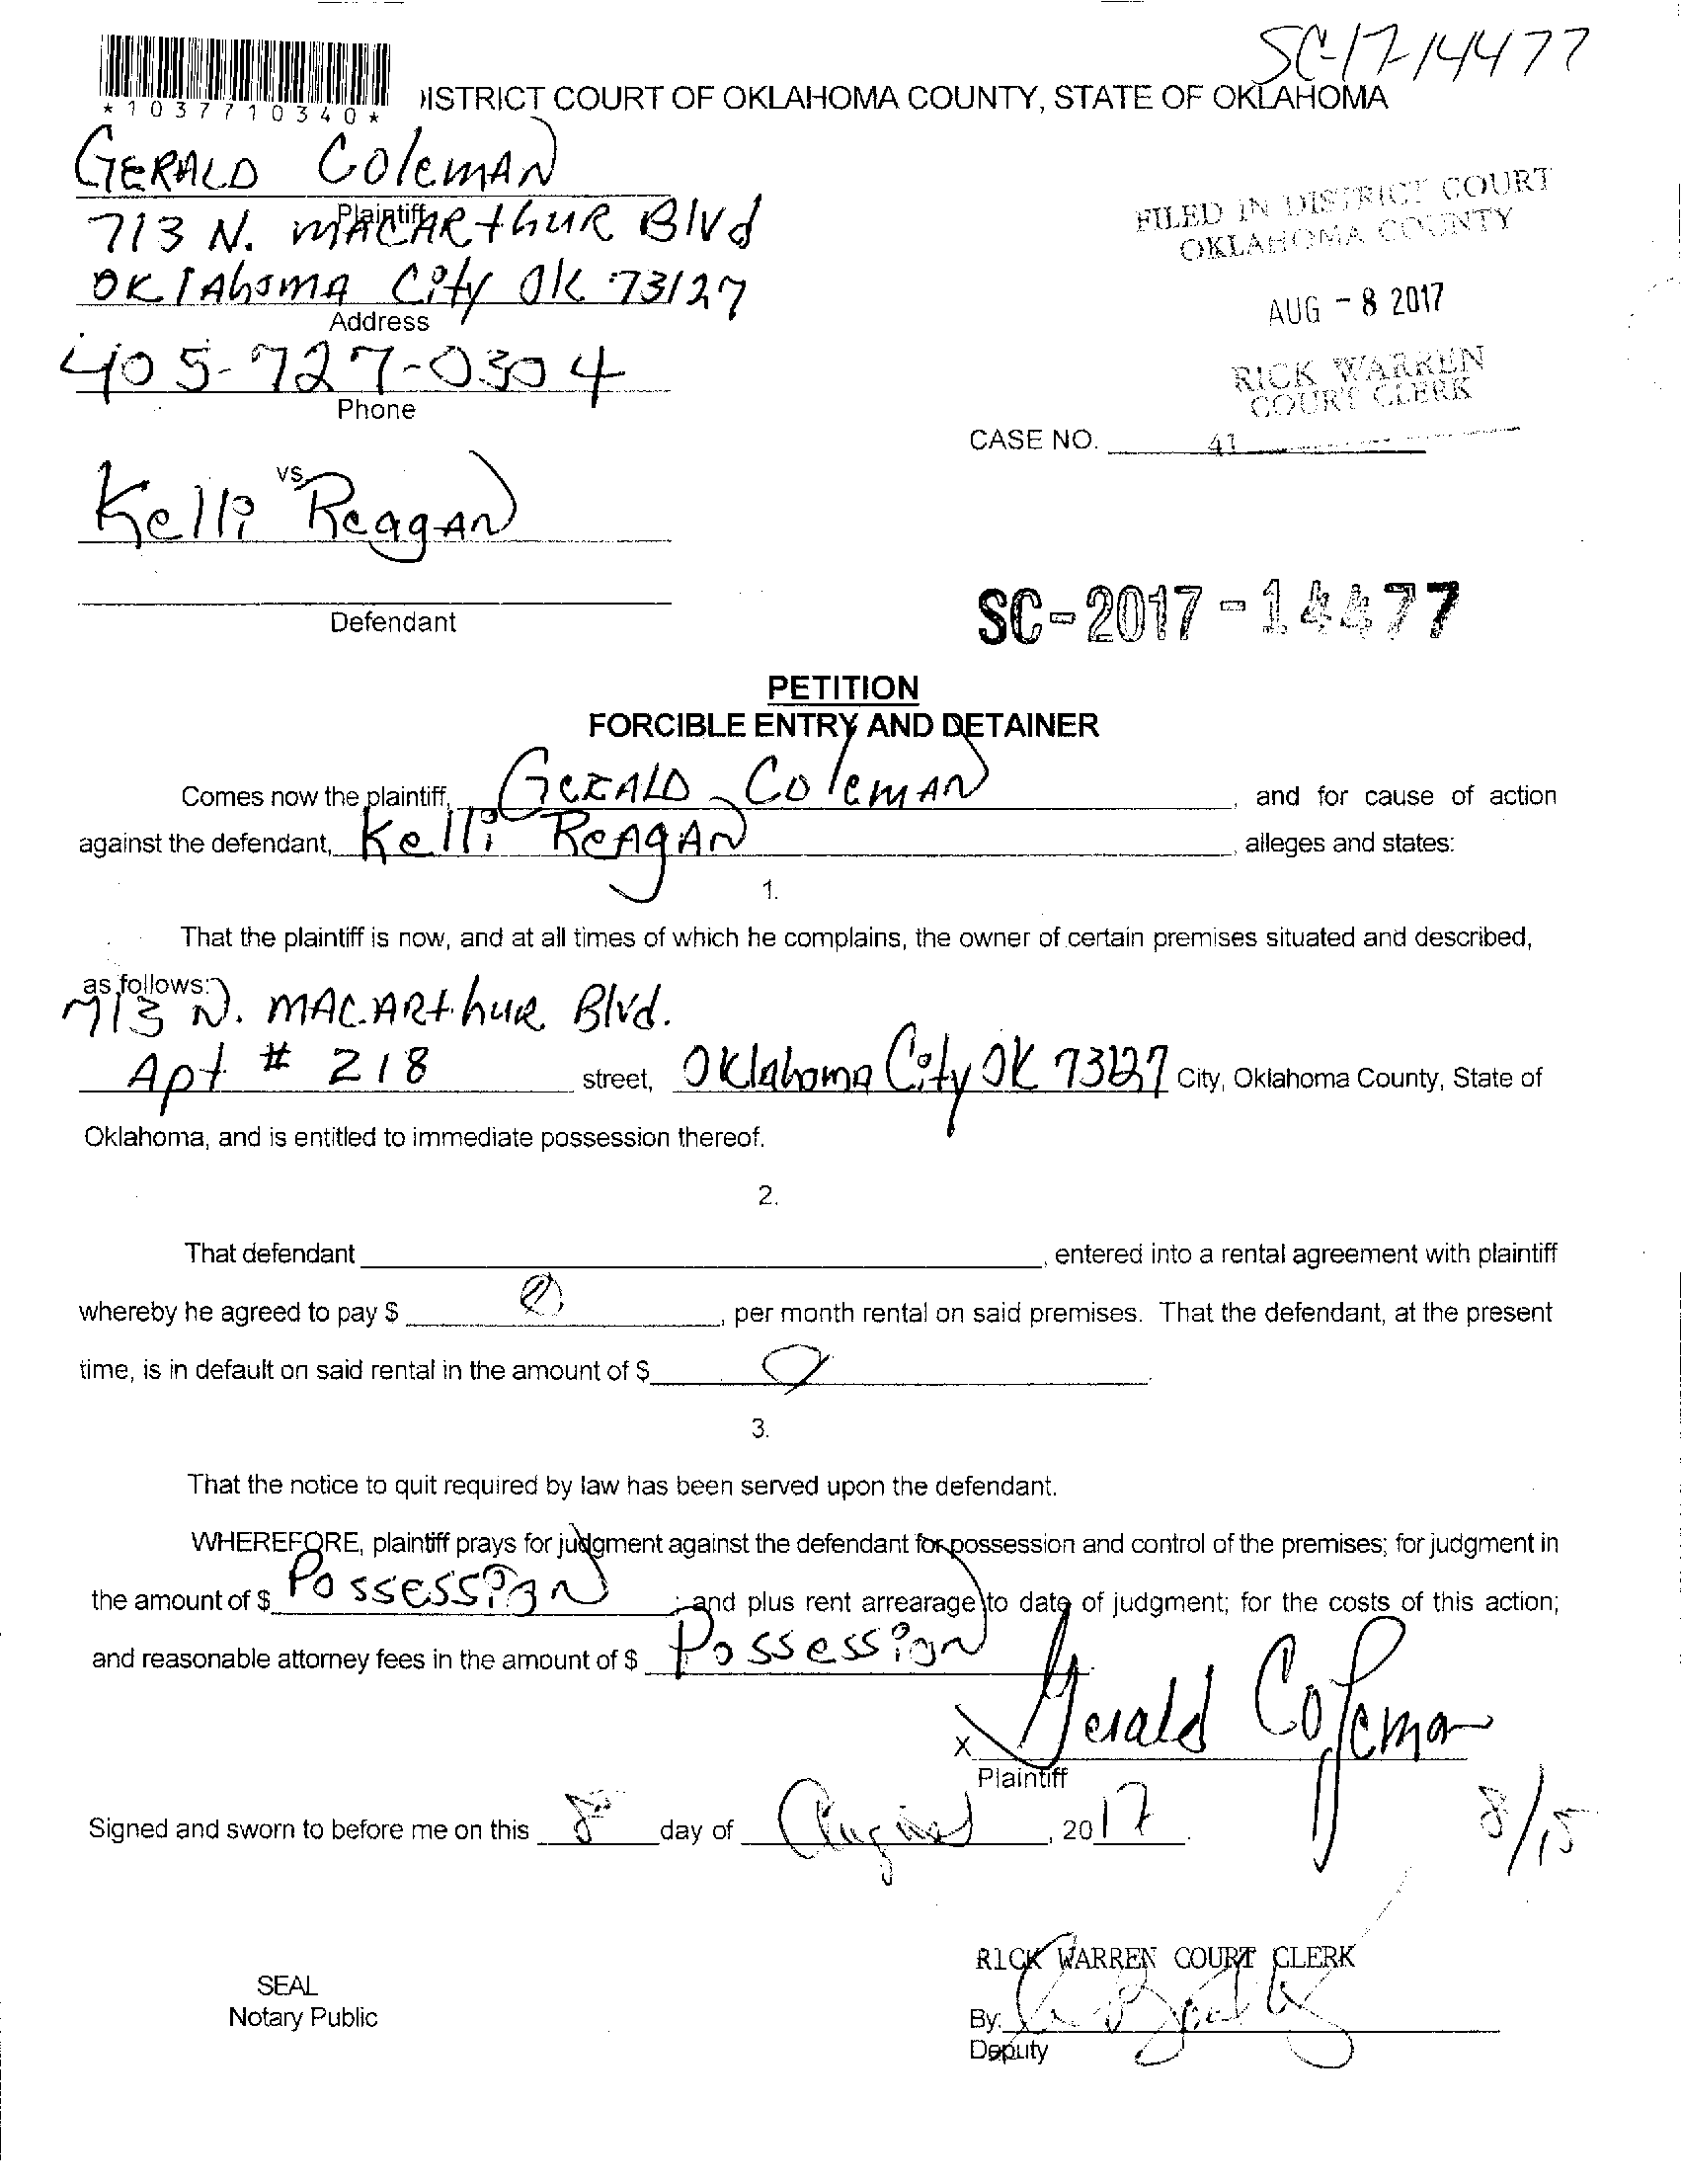 SC-17-14477
*1037710340*
DISTRICT COURT OF OKLAHOMA COUNTY, STATE OF OKLAHOMA
GERALD COleMAN
Plaintiff
713 N. MACARthuR Blvd
OKlAhoMA City OK 73127
Address
405-727-0304
Phone
FILED IN DISTRICT COURT
OKLAHOMA COUNTY
AUG - 8 2017
RICK WARREN
COURT CLERK
CASE NO.
41
vs
Kelli ReagAN
Defendant
SC-2017-14477
PETITION
FORCIBLE ENTRY AND DETAINER
Comes now the plaintiff, GERALD COleMAN, and for cause of action
against the defendant, Kelli ReAgAN, alleges and states:
1.
That the plaintiff is now, and at all times of which he complains, the owner of certain premises situated and described,
as follows:
713 N. MACARthuR Blvd.
Apt # 218 street, Oklahoma City OK 73127 City, Oklahoma County, State of
Oklahoma, and is entitled to immediate possession thereof.
2.
That defendant , entered into a rental agreement with plaintiff
whereby he agreed to pay $ 0, per month rental on said premises. That the defendant, at the present
time, is in default on said rental in the amount of $ 0
3.
That the notice to quit required by law has been served upon the defendant.
WHEREFORE, plaintiff prays for judgment against the defendant for possession and control of the premises; for judgment in
the amount of $ PossessioN ; and plus rent arrearage to date of judgment; for the costs of this action;
and reasonable attorney fees in the amount of $ Possession
x Gerald Coleman
Plaintiff
Signed and sworn to before me on this 8 day of August, 2017
8/15
RICK WARREN COURT CLERK
SEAL
Notary Public
By:
Deputy